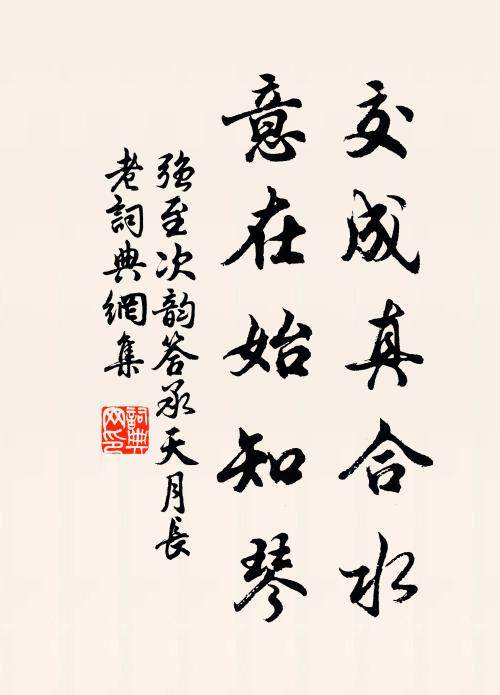 交成真合水
意在始知琴
強至次韵答承天月長
老詞典網集
詞典網印